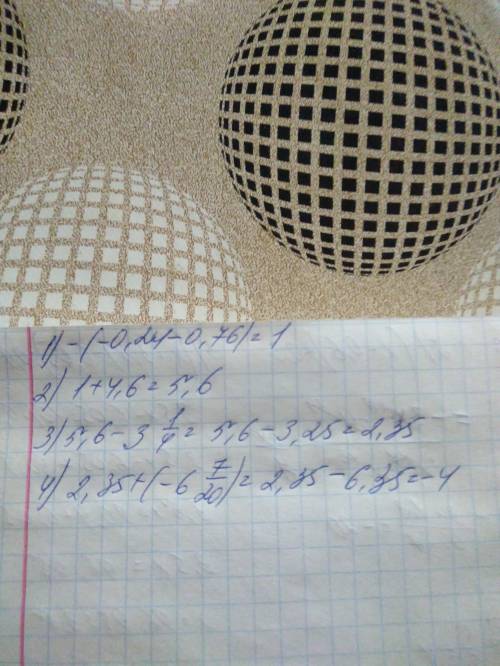 1) -(-0,24-0,76)=1
2) 1+4,6=5,6
3) 5,6-3 1/4=5,6-3,25=2,35
4) 2,35+(-6 7/20)=2,35-6,35=-4